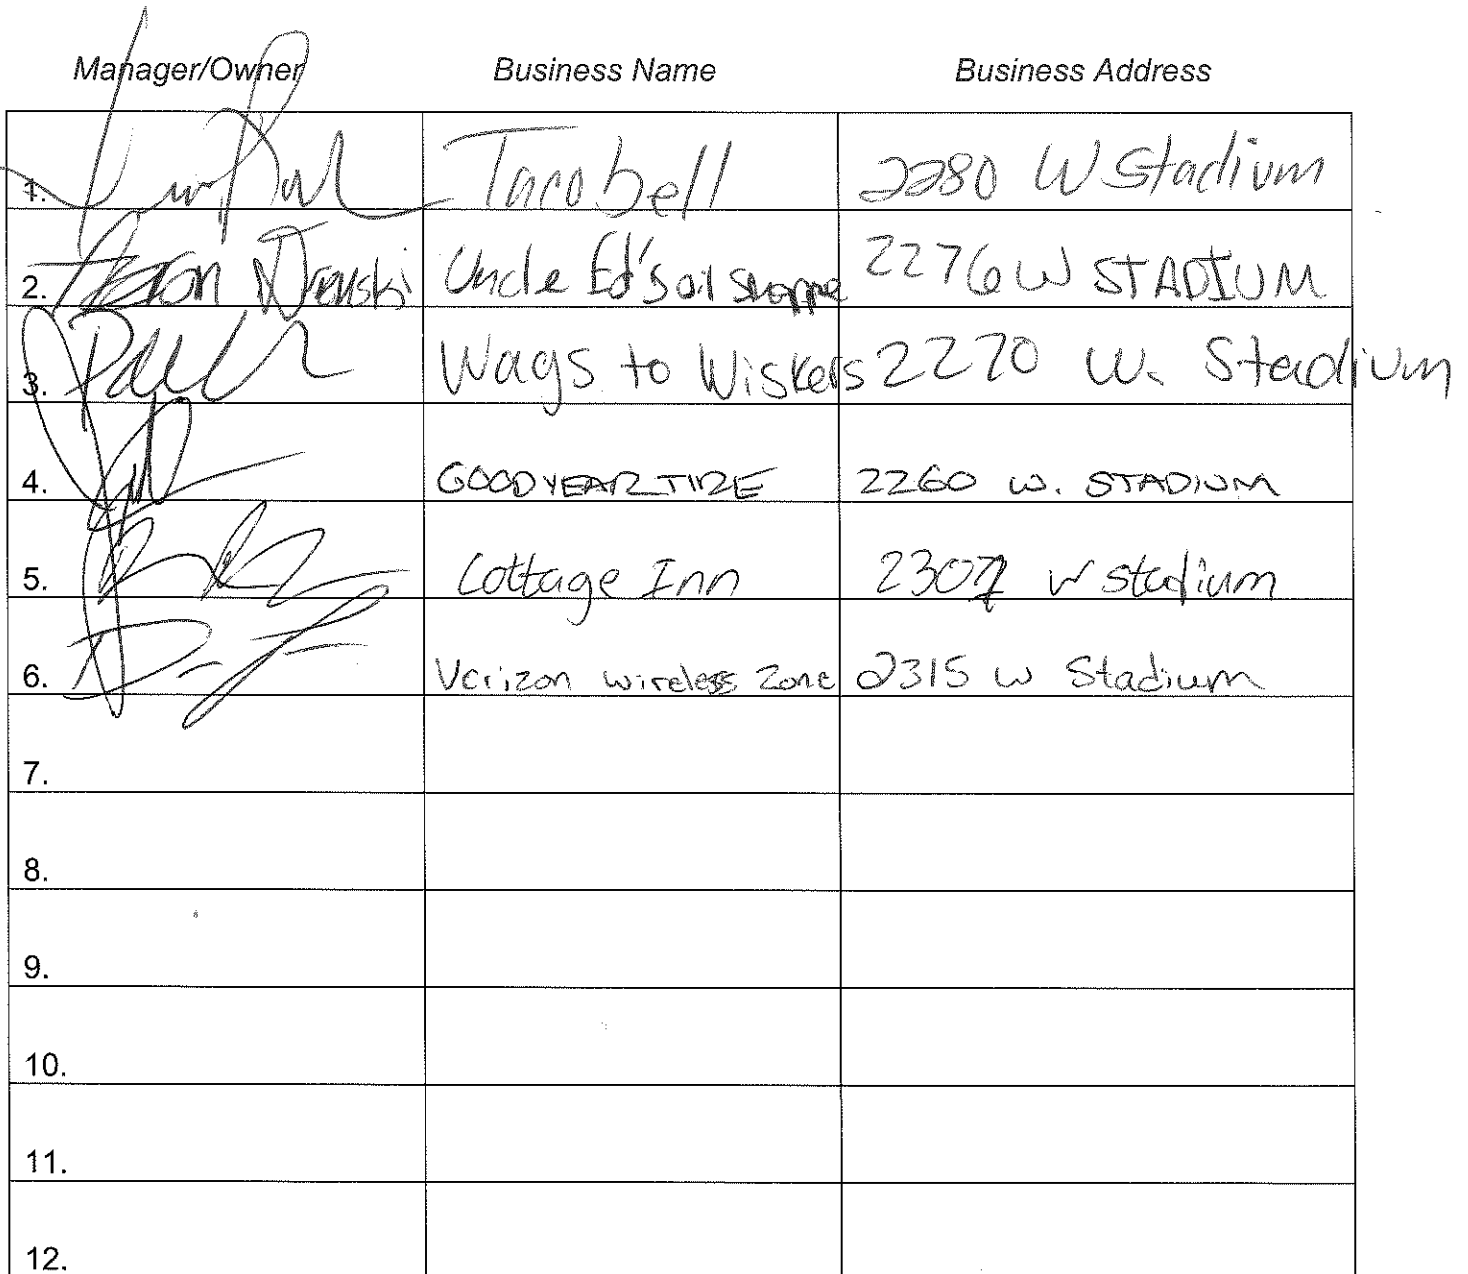 Manager/Owner Business Name Business Address
1. Tacobell 2280 W Stadium
2. Uncle Ed's oil shoppe 2276 W STADIUM
3. Wags to Wiskers 2270 W. Stadium
4. GOODYEAR TIRE 2260 W. STADIUM
5. Cottage Inn w stadium
6. Verizon wireless Zone 2315 w Stadium
7.
8.
9.
10.
11.
12.